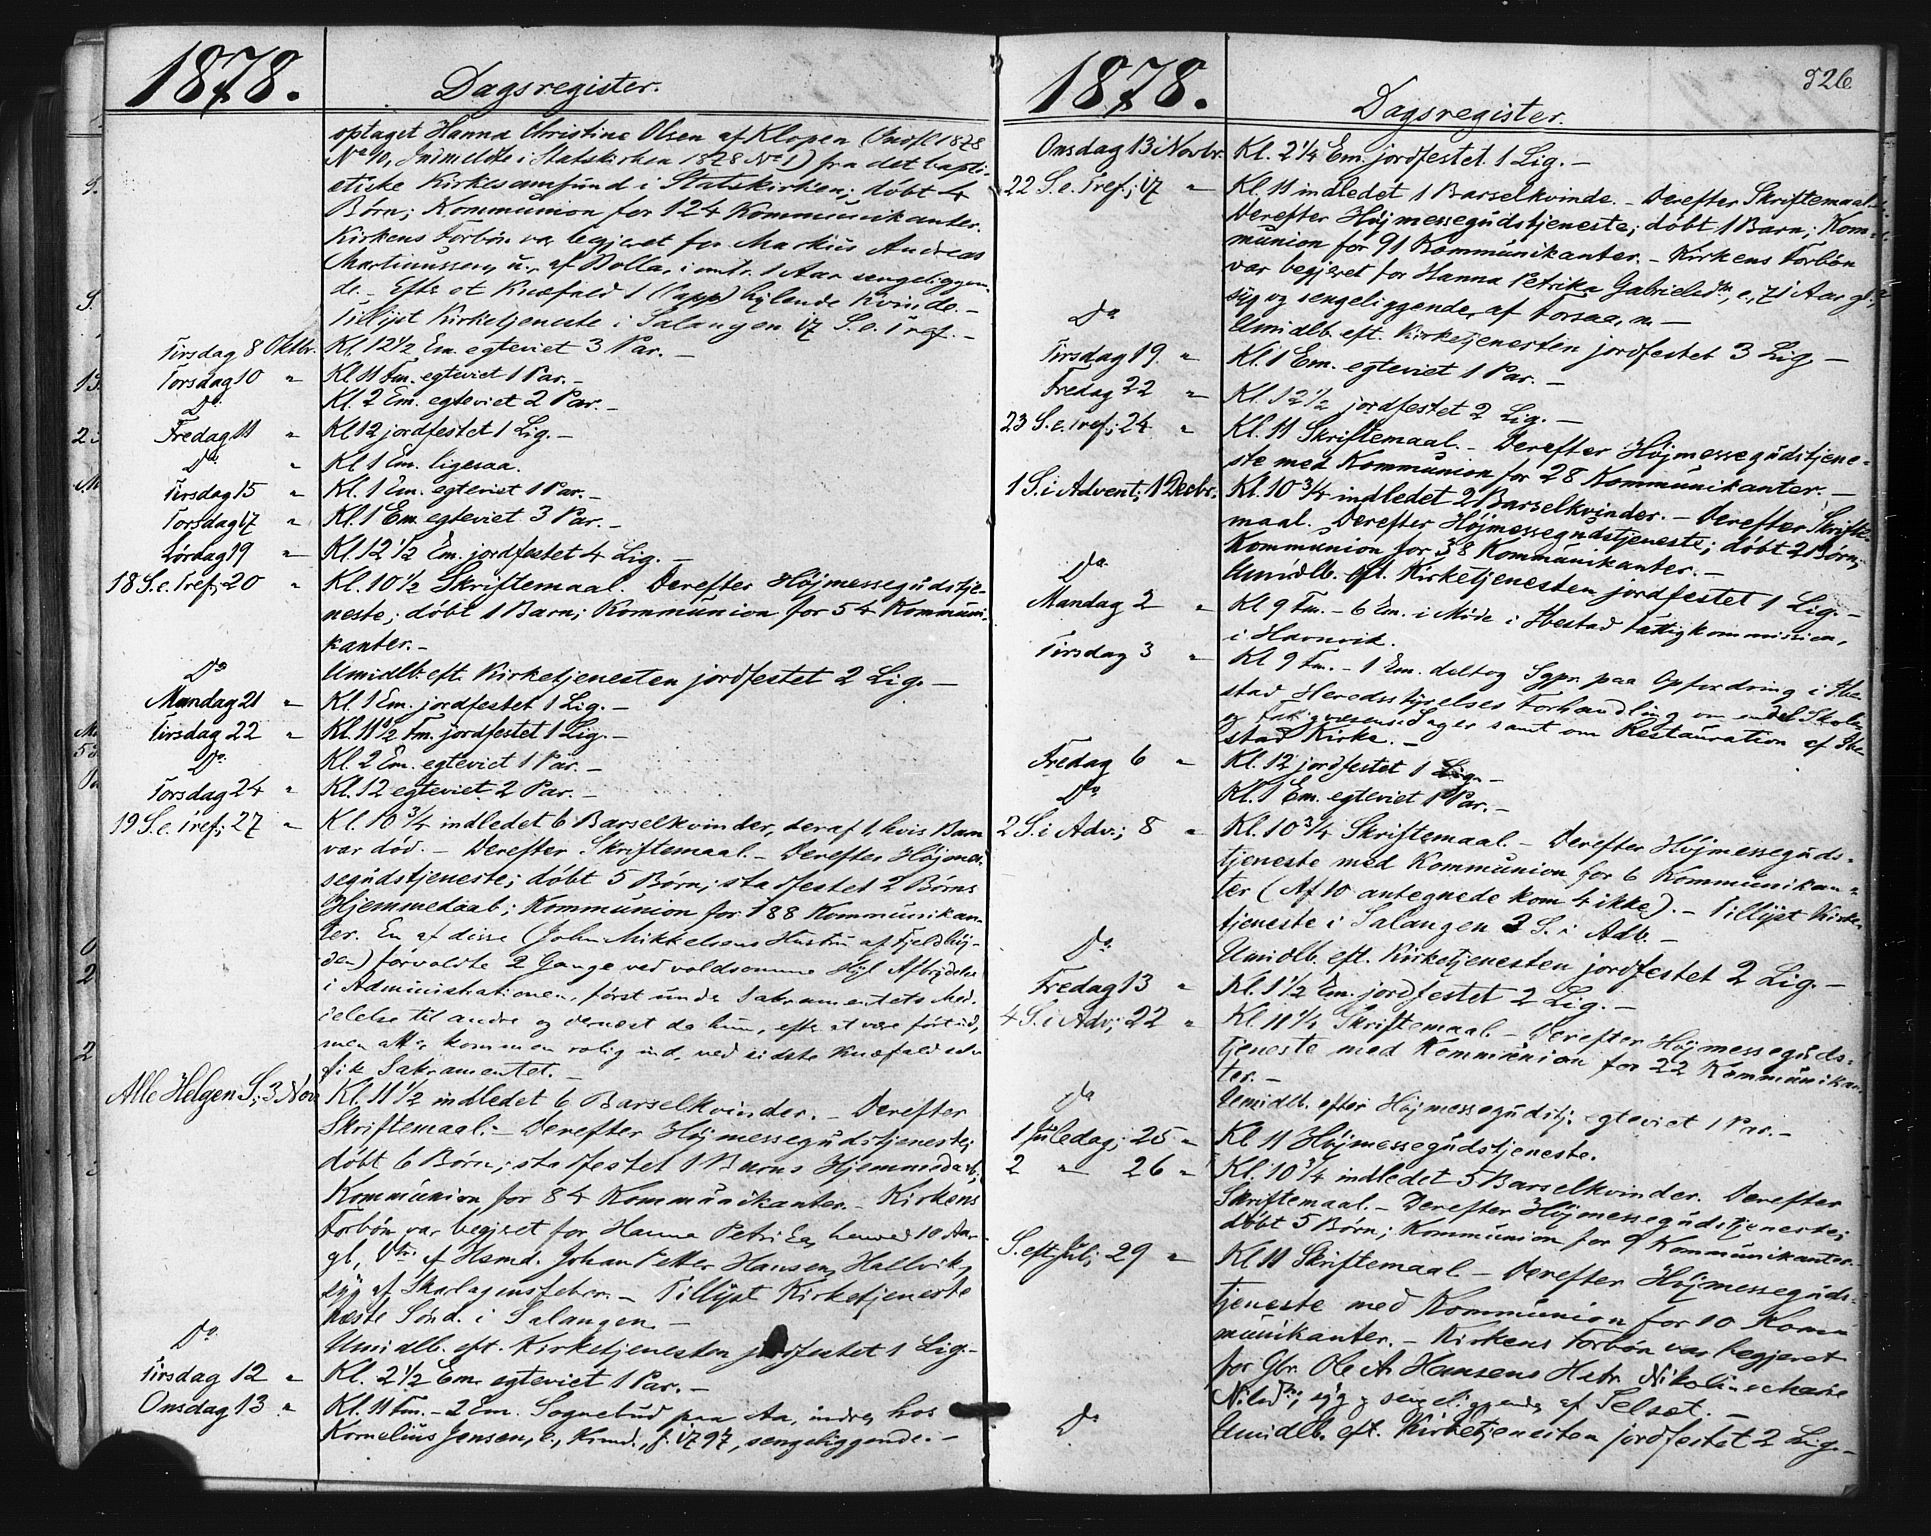 1878.
Dagsregister.
optaget Hanna Christine Olsen af Klopen (Indfl 1878
No 10, Indmeldte i Statskirken 1878 No 1) fra det bapti-
stiske Kirkesamfund i Statskirken; døbt 4
Børn; Kommunion for 124 Kommunikanter.
Kirkens Forbøn var begjeret for Markus Andreas
Martinussen, u., af Bolla, i omtr. 1 Aar sengeliggen-
de. - Efter et Knæfald 1 (Lapp) hylende Kvinde. -
Tillyst Kirketjeneste i Salangen 17 S. e. Tref. -
Tirsdag 8 Oktbr. Kl. 12 1/2 Em. egteviet 3 Par. -
Torsdag 10 " Kl. 11 Fm. egteviet 1 Par. -
Do. Kl. 2 Em. egteviet 2 Par. -
Fredag 11 " Kl 12 jordfestet 1 Lig. -
Do " Kl. 1 Em. ligesaa.
Tirsdag 15 " Kl. 1 Em. egteviet 1 Par. -
Torsdag 17 " Kl. 1 Em. egteviet 3 Par. -
Lørdag 19 " Kl. 12 1/2 Em. jordfestet 4 Lig. -
18 S. e. Tref; 20 " Kl. 10 1/2 Skriftemaal. Derefter Højmessegudstje-
neste; døbt 1 Barn; Kommunion for 54 Kommuni-
kanter. -
Do Umidlb. eft. Kirketjenesten jordfestet 2 Lig. -
Mandag 21 " Kl. 1 Em. jordfestet 1 Lig. -
Tirsdag 22 " Kl. 11 1/2 Fm. jordfestet 1 Lig. -
Do. Kl. 2 Em. egteviet 1 Par. -
Torsdag 24 " Kl. 12 egteviet 2 Par. -
19 S. e. Tref; 27 " Kl. 10 3/4 indledet 6 Barselkvinder, deraf 1, hvis Barn
var død. - Derefter Skriftemaal. - Derefter Højmes-
segudstjeneste; døbt 5 Børn; stadfestet 2 Børns
Hjemmedaab; Kommunion for 188 Kommunikan-
ter. En af disse (John Mikkelsens Hustru af Fjeldhøj-
den) forvoldte 2 Gange ved voldsomme Hyl Afbrydelse
i Administrationen, først under Sakramentets Med-
delelse til andre og dernest da hun, efter at være ført ud,
men atter kommen rolig ind, ved sidste Knæfald selv
fik Sakramentet. -
Alle Helgen S; 3 Nov Kl. 11 1/2 indledet 6 Barselkvinder. - Derefter
Skriftemaal. - Derefter Højmessegudstjeneste;
døbt 6 Børn; stadfestet 1 Barns Hjemmedaab;
Kommunion for 84 Kommunikanter. - Kirkens
Forbøn var begjeret for Hanna Petrikea, henved 10 Aar
gl., Dtr. af Hsmd. Johan Petter Hansen, Hallvik,
syg af Skarlagensfeber. - Tillyst Kirketjeneste
næste Sønd. i Salangen. -
Do Umidlb. eft. Kirketjenesten jordfestet 1 Lig. -
Tirsdag 12 " Kl. 2 1/2 Em. egteviet 1 Par. -
Onsdag 13 " Kl. 11 Fm. - 2 Em. Sognebud paa Aa, indre, hos
Kornelius Jensen, e., Krmd., f. 1797, sengeliggende. -
1878.
326
Dagsregister.
Onsdag 13 Novbr. Kl. 2 1/4 Em. jordfestet 1 Lig. -
22 S. e. Tref; 17 " Kl. 11 indledet 1 Barselkvinde. - Derefter Skriftemaal.
Derefter Højmessegudstjeneste; døbt 1 Barn; Kom-
munion for 91 Kommunikanter. - Kirkens Forbøn
var begjeret for Hanna Petrika Gabrielsdtr., e., 71 Aar gl.,
syg og sengeliggende, af Forsaa, n. -
Do Umidlb. eft. Kirketjenesten jordfestet 3 Lig. -
Tirsdag 19. " Kl. 1 Em. egteviet 1 Par. -
Fredag 22 " Kl. 12 1/2 jordfestet 2 Lig. -
23 S. e. Tref; 24 " Kl. 11 Skriftemaal. - Derefter Højmessegudstjene-
ste med Kommunion for 28 Kommunikanter. -
1 S. i Advent; 1 Decbr. Kl. 10 3/4 indledet 2 Barselkvinder. - Derefter Skrifte-
maal. Derefter Højmessegudstjeneste; døbt 2 Børn;
Kommunion for 38 Kommunikanter. -
Do Umidlb. eft. Kirketjenesten jordfestet 1 Lig. -
Mandag 2 " Kl 9 Fm. - 6 Em. i Møde i Ibestad Fattigkommission,
i Havnvik.
Tirsdag 3 " Kl 9 Fm. - 1 Em. deltog Sgpr. paa Opfordring i Ibe-
stad Heredsstyrelses Forhandling om endel Skole
og Fattigvæsens-Sager samt om Restauration af Ibe-
stad Kirke. -
Fredag 6 " Kl. 12 jordfestet 1 Lig. -
Do Kl. 1 Em. egteviet 1 Par. -
2 S. i Adv.; 8 " Kl. 10 3/4 Skriftemaal. - Derefter Højmesseguds-
tjeneste med Kommunion for 6 Kommunikan-
ter (Af 10 antegnede kom 4 ikke). - Tillyst Kirke-
tjeneste i Salangen 3 S. i Adv. -
Do Umidlb. eft. Kirketjenesten jordfestet 2 Lig. -
Fredag 13 " Kl. 1 1/2 Em. jordfestet 2 Lig. -
4 S. i Adv; 22 " Kl 11 1/2 Skriftemaal. - Derefter Højmesseguds-
tjeneste med Kommunion for 22 Kommunikan-
ter. -
Do Umidlb. efter Højmessegudstj. egteviet 1 Par. -
1 Juledag; 25 " Kl. 11 Højmessegudstjeneste.
2 " 26 " Kl. 10 3/4 indledet 5 Barselkvinder. Derefter
Skriftemaal. - Derefter Højmessegudstjeneste;
døbt 5 Børn; Kommunion for 9 Kommunikanter.
S. eft Jul; 29 " Kl 11 Skriftemaal. - Derefter Højmesseguds-
tjeneste med Kommunion for 10 Kom-
munikanter. - Kirkens Forbøn var begjeret
for Gbr. Ole A. Hansens Hstr. Nikoline Marie
Nilsdtr., syg og sengeliggende, af Selset. -
Do Umidlb. eft. Kirketjenesten jordfestet 2 Lig. -